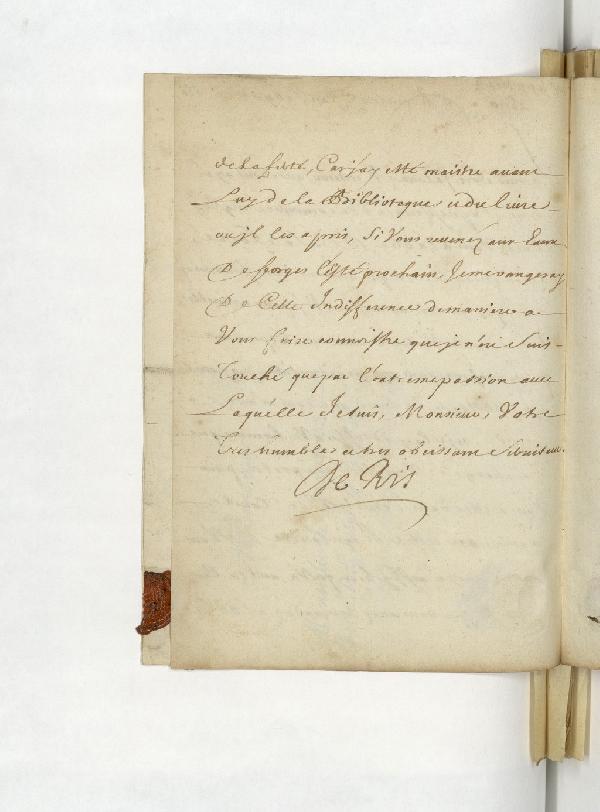 de la fierté, Car j'ay esté maistre avant
Luy de la Bibliotaque et du livre
ou jl les a pris, Si Vous revenez aux Eaux
De fforges l'esté prochain, Je me vangeray
De Cette Indifference de maniere a
Vous faire connoistre que je n'en Suis
Touché que par l'extreme passion avec
Laquelle Je suis, Monsieur, Votre
Tres humble et tres obeissant Serviteur
De Ris